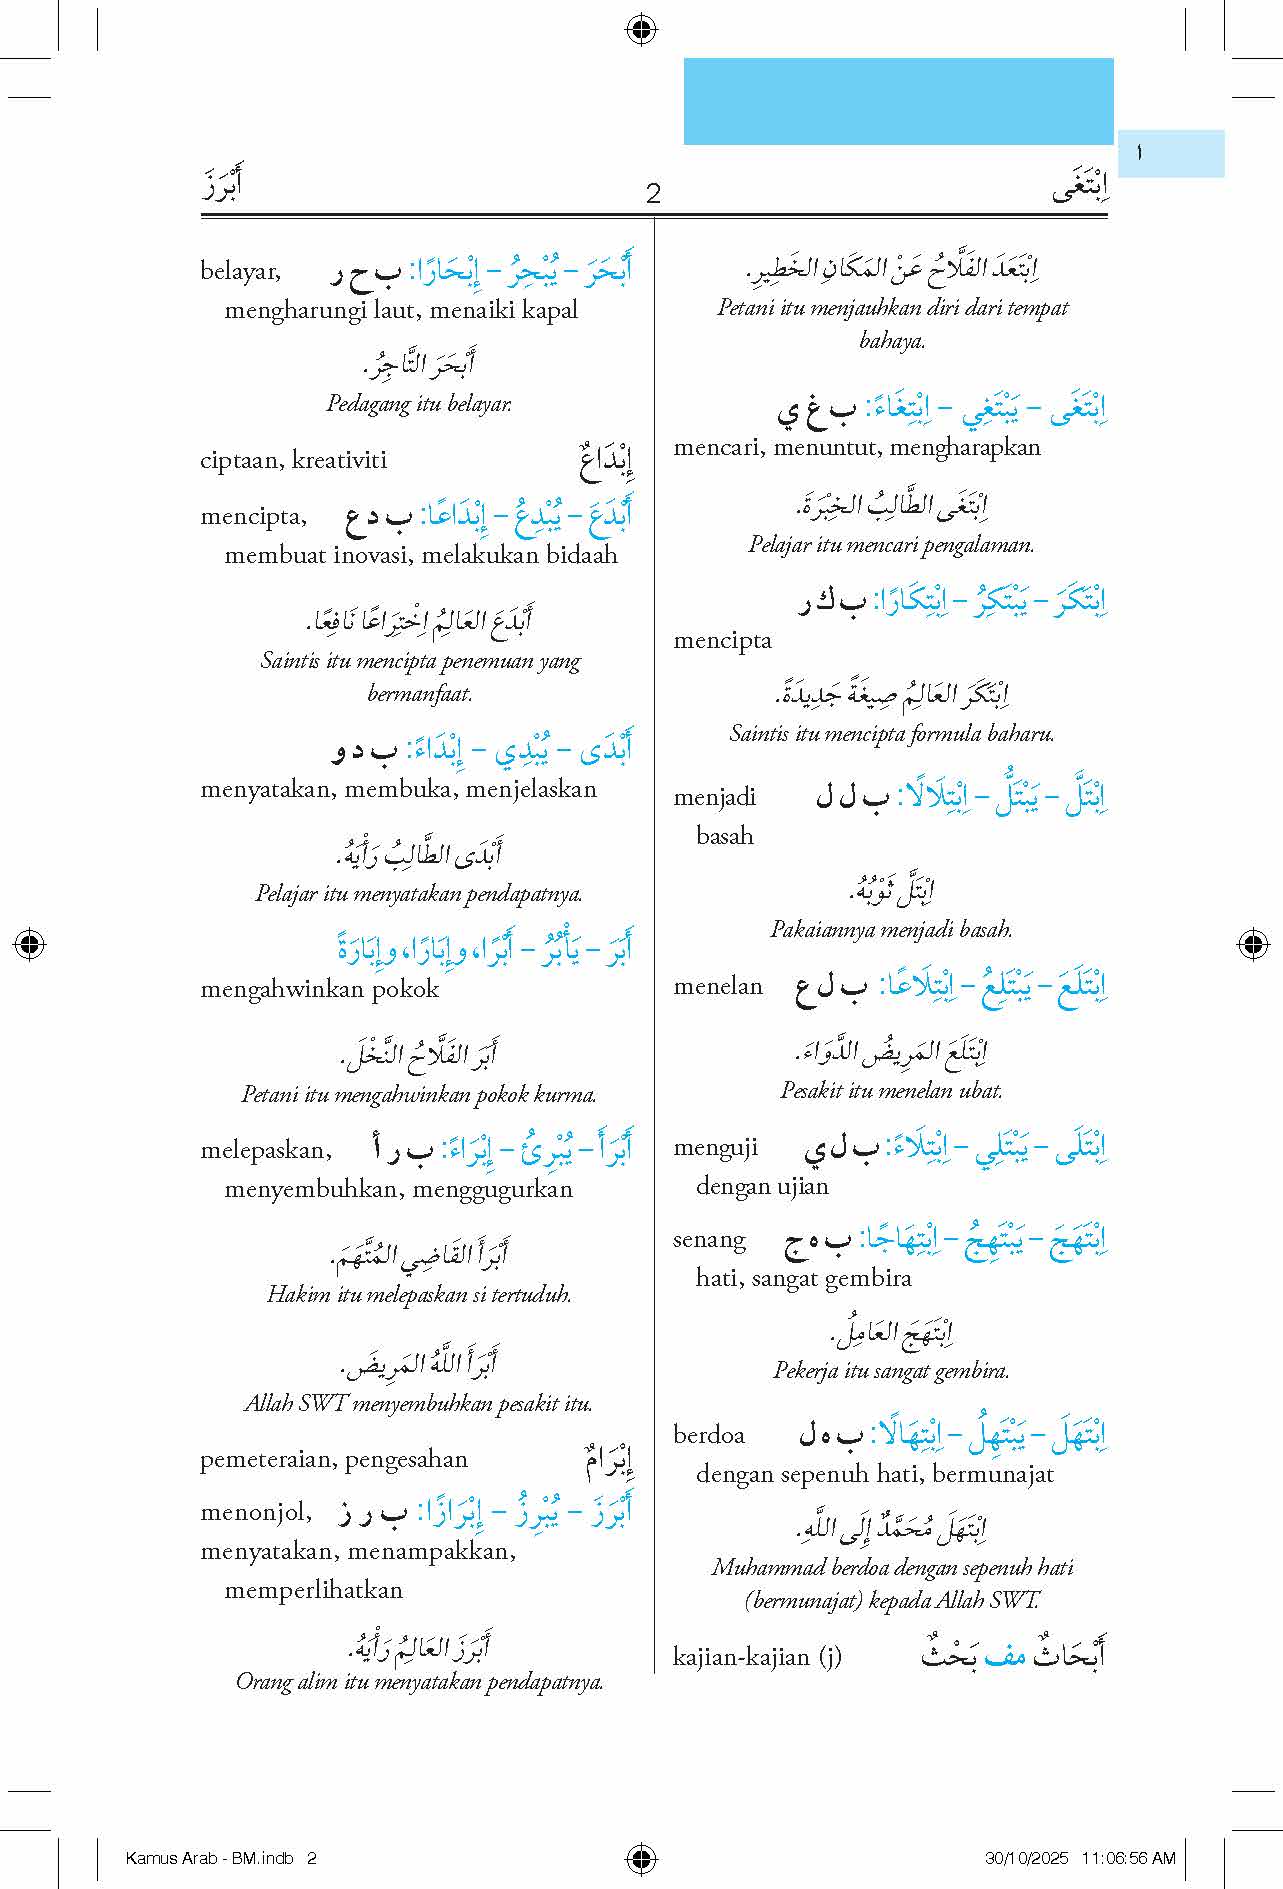 ا
اِبْتَغَى 2 أَبْرَزَ
اِبْتَعَدَ الفَلَّاحُ عَنْ المَكَانِ الخَطِيرِ.
Petani itu menjauhkan diri dari tempat
bahaya.
اِبْتَغَى – يَبْتَغِي – اِبْتِغَاءً: ب غ ي
mencari, menuntut, mengharapkan
اِبْتَغَى الطَّالِبُ الخِبْرَةَ.
Pelajar itu mencari pengalaman.
اِبْتَكَرَ – يَبْتَكِرُ – اِبْتِكَارًا: ب ك ر
mencipta
اِبْتَكَرَ العَالِمُ صِيغَةً جَدِيدَةً.
Saintis itu mencipta formula baharu.
اِبْتَلَّ – يَبْتَلُّ – اِبْتِلَالًا: ب ل ل menjadi
basah
اِبْتَلَّ ثَوْبُهُ.
Pakaiannya menjadi basah.
اِبْتَلَعَ – يَبْتَلِعُ – اِبْتِلَاعًا: ب ل ع menelan
اِبْتَلَعَ المَرِيضُ الدَّوَاءَ.
Pesakit itu menelan ubat.
اِبْتَلَى – يَبْتَلِي – اِبْتِلَاءً: ب ل ي menguji
dengan ujian
اِبْتَهَجَ – يَبْتَهِجُ – اِبْتِهَاجًا: ب ه ج senang
hati, sangat gembira
اِبْتَهَجَ العَامِلُ.
Pekerja itu sangat gembira.
اِبْتَهَلَ – يَبْتَهِلُ – اِبْتِهَالًا: ب ه ل berdoa
dengan sepenuh hati, bermunajat
اِبْتَهَلَ مُحَمَّدٌ إِلَى اللَّهِ.
Muhammad berdoa dengan sepenuh hati
(bermunajat) kepada Allah SWT.
أَبْحَاثٌ مف بَحْثٌ kajian-kajian (j)
أَبْحَرَ – يُبْحِرُ – إِبْحَارًا: ب ح ر belayar,
mengharungi laut, menaiki kapal
أَبْحَرَ التَّاجِرُ.
Pedagang itu belayar.
إِبْدَاعٌ ciptaan, kreativiti
أَبْدَعَ – يُبْدِعُ – إِبْدَاعًا: ب د ع mencipta,
membuat inovasi, melakukan bidaah
أَبْدَعَ العَالِمُ اِخْتِرَاعًا نَافِعًا.
Saintis itu mencipta penemuan yang
bermanfaat.
أَبْدَى – يُبْدِي – إِبْدَاءً: ب د و
menyatakan, membuka, menjelaskan
أَبْدَى الطَّالِبُ رَأْيَهُ.
Pelajar itu menyatakan pendapatnya.
أَبَرَ – يَأْبُرُ – أَبْرًا، وإِبَارًا، وإِبَارَةً
mengahwinkan pokok
أَبَرَ الفَلَّاحُ النَّخْلَ.
Petani itu mengahwinkan pokok kurma.
أَبْرَأَ – يُبْرِئُ – إِبْرَاءً: ب ر أ melepaskan,
menyembuhkan, menggugurkan
أَبْرَأَ القَاضِي المُتَّهَمَ.
Hakim itu melepaskan si tertuduh.
أَبْرَأَ اللَّهُ المَرِيضَ.
Allah SWT menyembuhkan pesakit itu.
إِبْرَامٌ pemeteraian, pengesahan
أَبْرَزَ – يُبْرِزُ – إِبْرَازًا: ب ر ز menonjol,
menyatakan, menampakkan,
memperlihatkan
أَبْرَزَ العَالِمُ رَأْيَهُ.
Orang alim itu menyatakan pendapatnya.
Kamus Arab - BM.indb 2 30/10/2025 11:06:56 AM